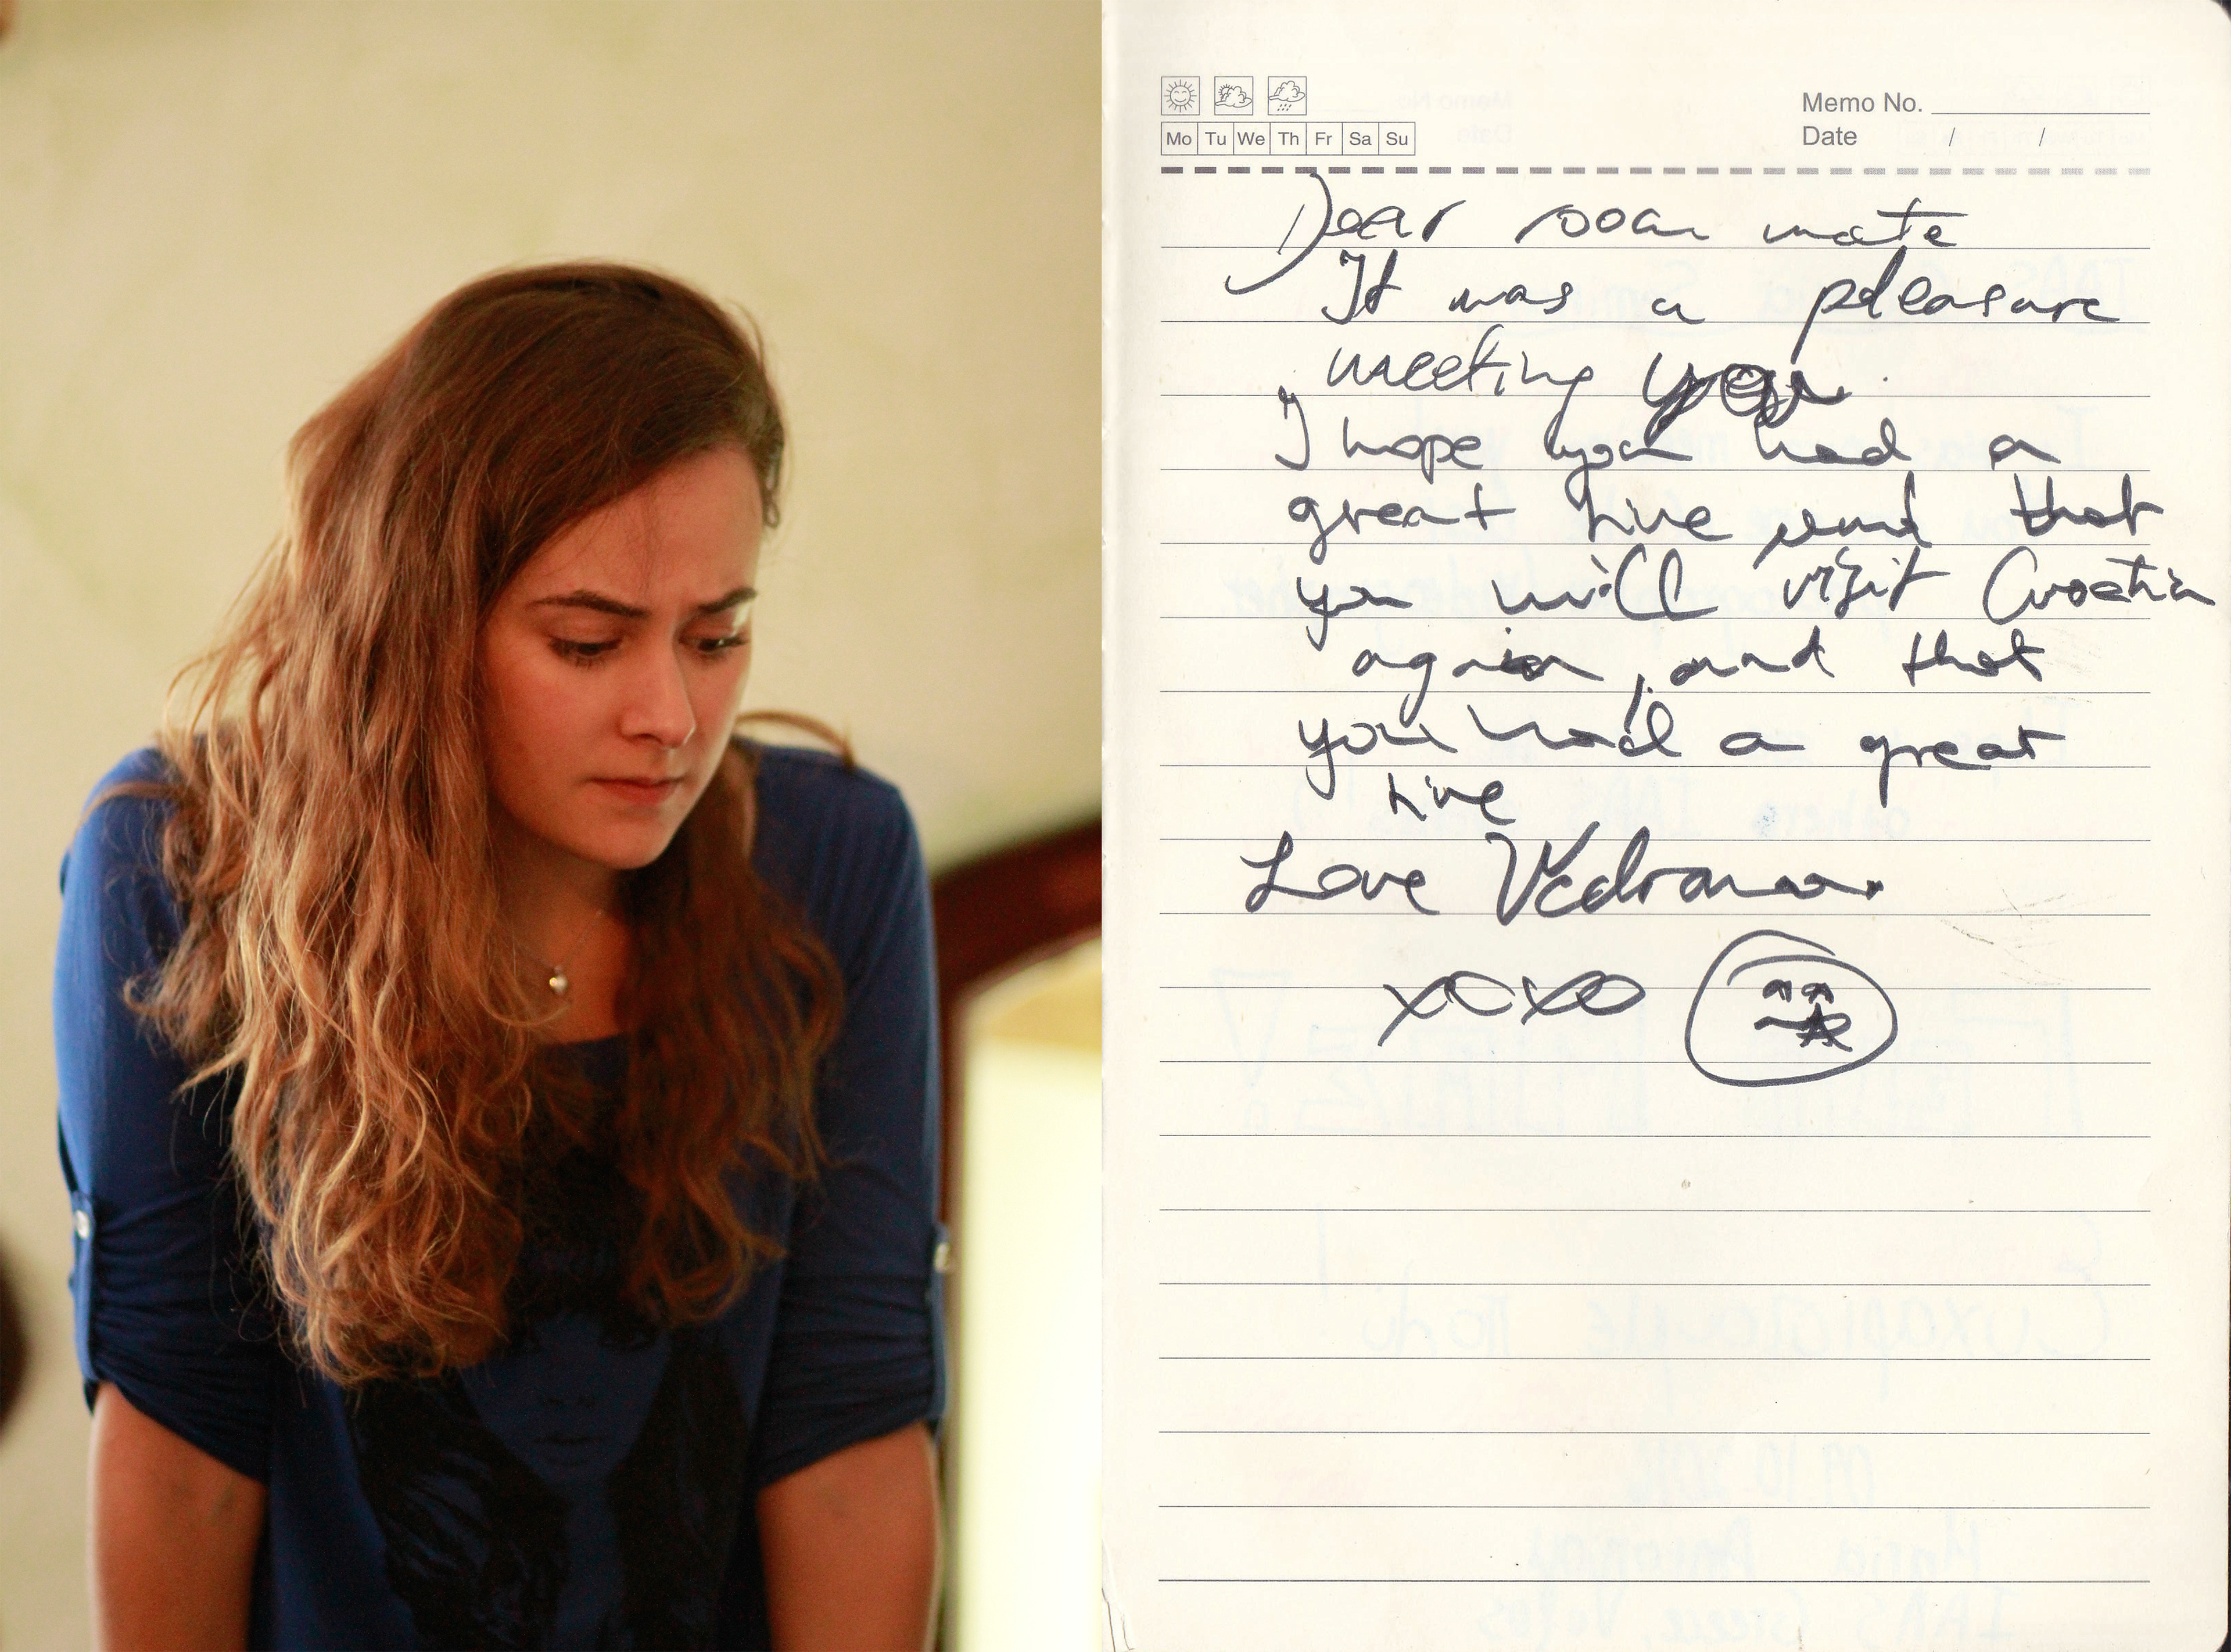 Memo No.
Mo Tu We Th Fr Sa Su
Date / /
Dear room mate
It was a pleasure
meeting you.
I hope you had a
great time and that
you will visit Croatia
again, and that
you had a great
time
Love Vedrana
xoxo